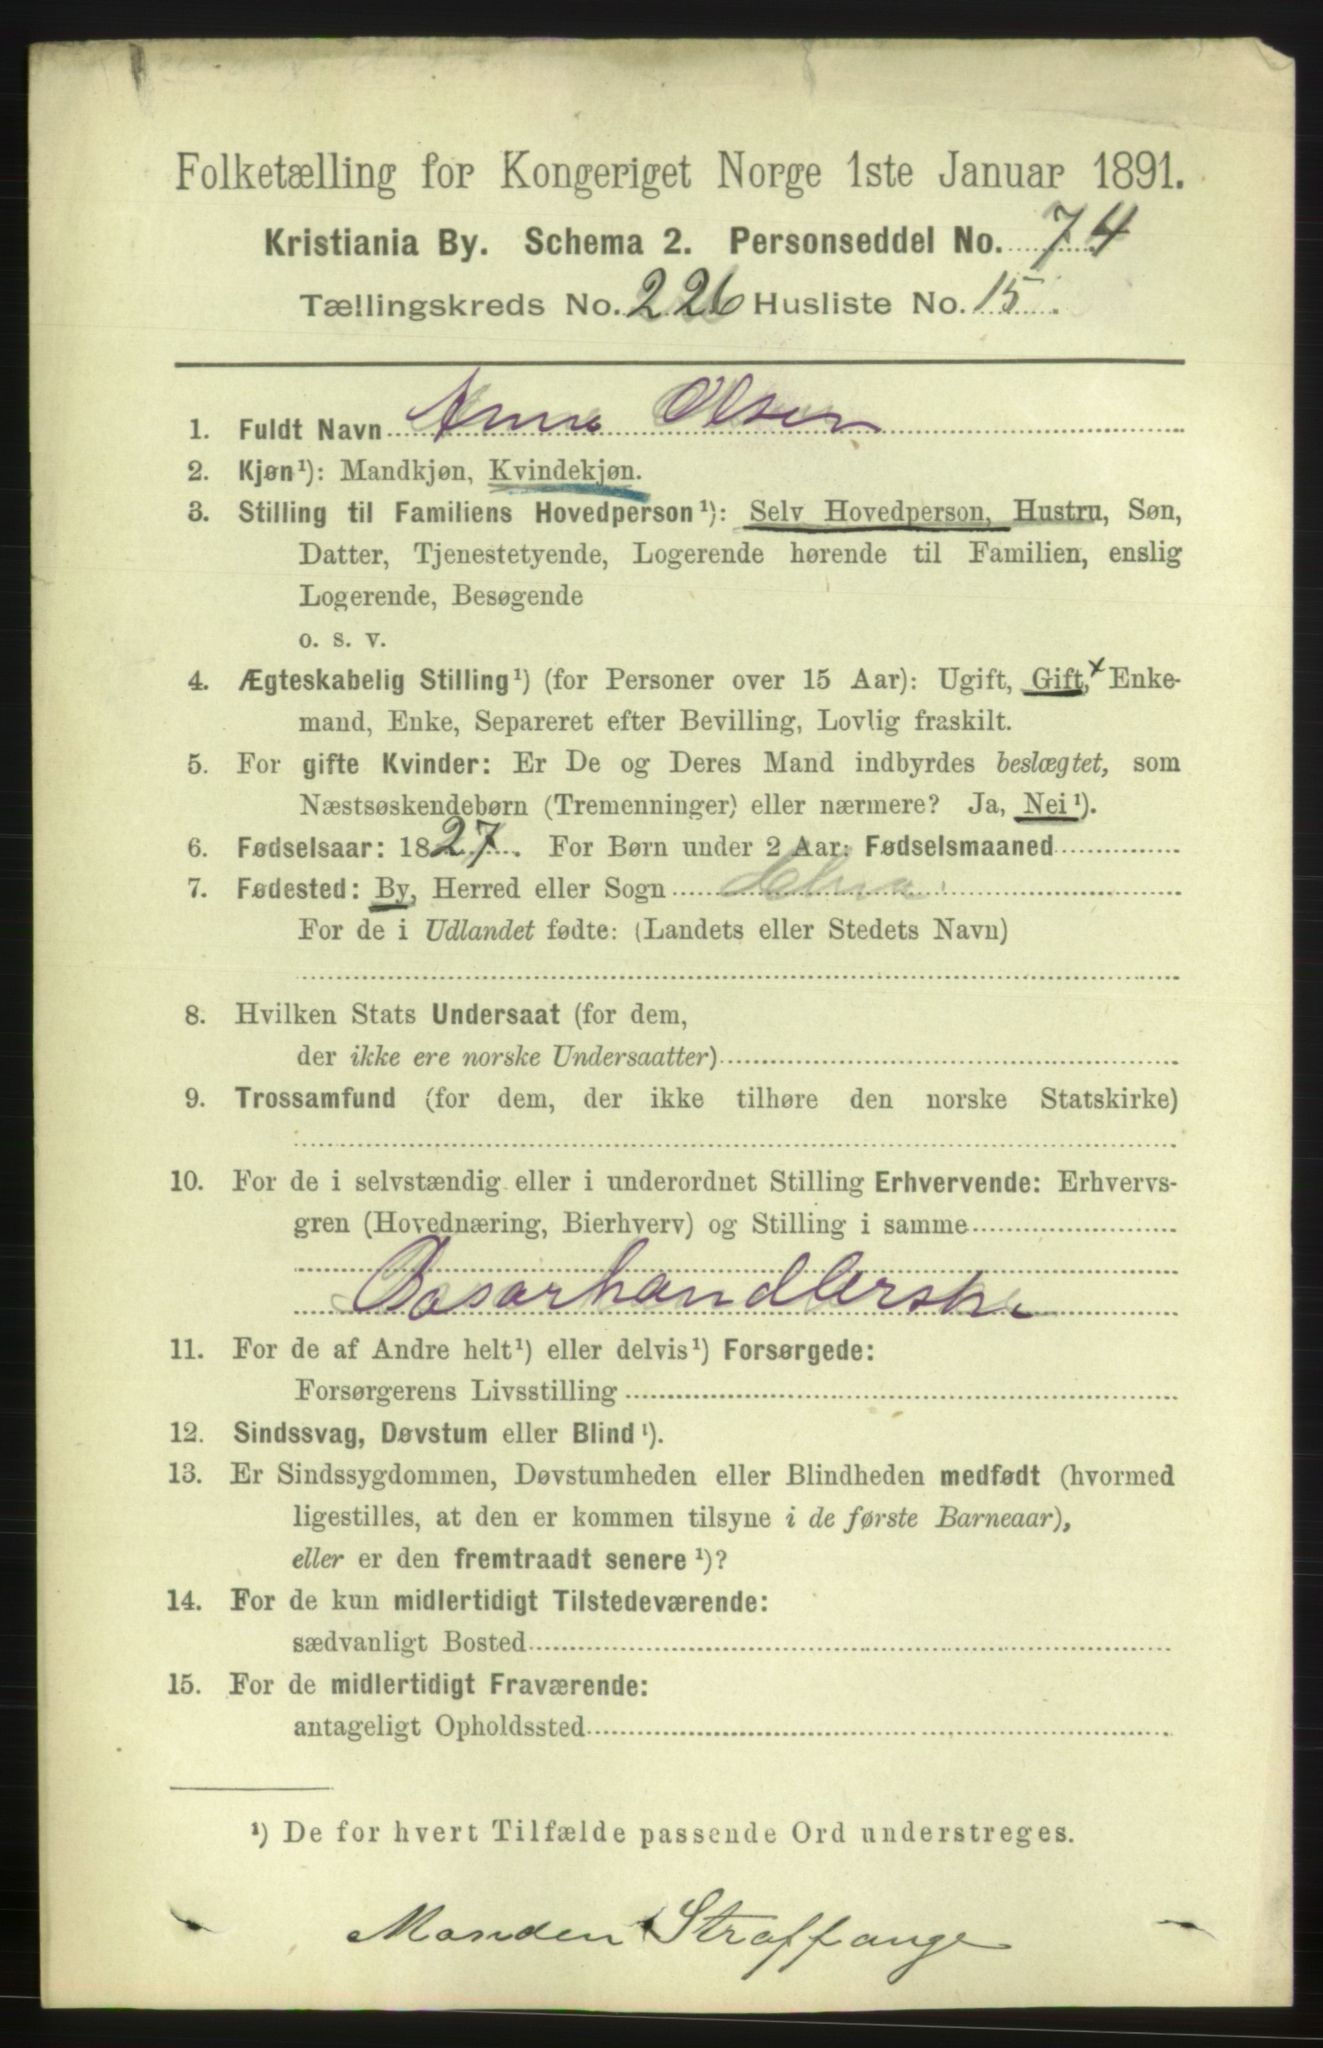 Folketælling for Kongeriget Norge 1ste Januar 1891.
Kristiania By. Schema 2. Personseddel No. 74
Tællingskreds No. 226 Husliste No. 15.
1. Fuldt Navn Anna Olsen
2. Kjøn¹): Mandkjøn, Kvindekjøn.
3. Stilling til Familiens Hovedperson¹): Selv Hovedperson, Hustru, Søn,
Datter, Tjenestetyende, Logerende hørende til Familien, enslig
Logerende, Besøgende
o. s. v.
4. Ægteskabelig Stilling¹) (for Personer over 15 Aar): Ugift, Gift,× Enke-
mand, Enke, Separeret efter Bevilling, Lovlig fraskilt.
5. For gifte Kvinder: Er De og Deres Mand indbyrdes beslægtet, som
Næstsøskendebørn (Tremenninger) eller nærmere? Ja, Nei¹).
6. Fødselsaar: 1827. For Børn under 2 Aar: Fødselsmaaned
7. Fødested: By, Herred eller Sogn
For de i Udlandet fødte: (Landets eller Stedets Navn)
8. Hvilken Stats Undersaat (for dem,
der ikke ere norske Undersaatter)
9. Trossamfund (for dem, der ikke tilhøre den norske Statskirke)
10. For de i selvstændig eller i underordnet Stilling Erhvervende: Erhvervs-
gren (Hovednæring, Bierhverv) og Stilling i samme
Basarhandlerske
11. For de af Andre helt¹) eller delvis¹) Forsørgede:
Forsørgerens Livsstilling
12. Sindssvag, Døvstum eller Blind¹).
13. Er Sindssygdommen, Døvstumheden eller Blindheden medfødt (hvormed
ligestilles, at den er kommen tilsyne i de første Barneaar),
eller er den fremtraadt senere¹)?
14. For de kun midlertidigt Tilstedeværende:
sædvanligt Bosted
15. For de midlertidigt Fraværende:
antageligt Opholdssted
¹) De for hvert Tilfælde passende Ord understreges.
Manden Straffange